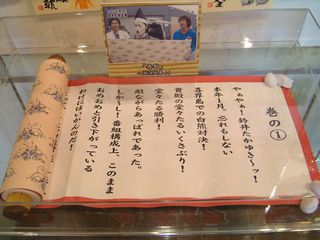 巻の①
やぁやぁ！鈴井たかゆき〜ッ！
本年1月、忘れもしない
喜界島での白熊対決！
貴殿の堂々たるいくさぶり！
堂々たる勝利！
敵ながらあっぱれであった。
しか〜し！番組構成上、このまま
おめおめと引き下がっている
わけにはいかんのだ！